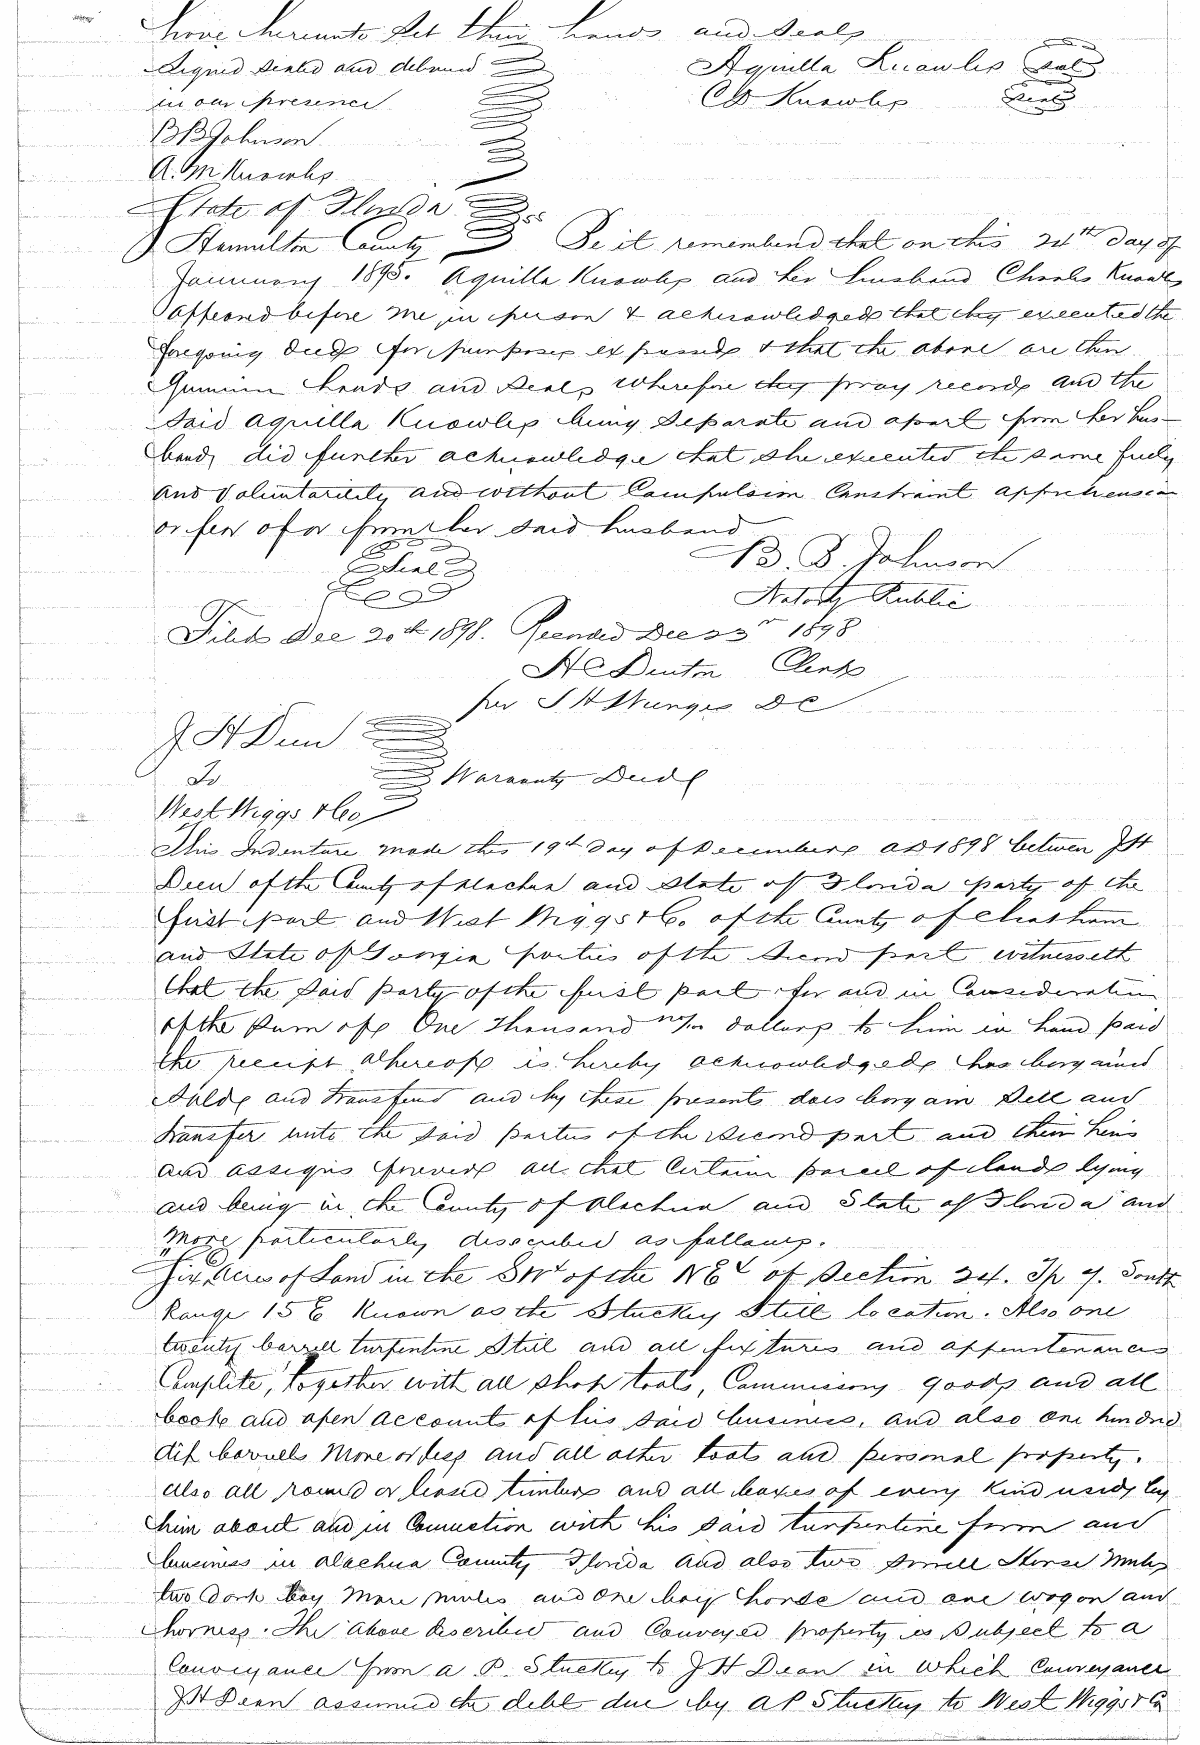 have hereunto set their hands and seals
Signed sealed and delivered Aquilla Knowles Seal
in our presence C D Knowles Seal
B B Johnson
A. M Knowles
State of Florida
Hamilton County } ss Be it remembered that on this 24th day of
January 1895. Aquilla Knowles and her husband Charles Knowles
appeared before me in person & acknowledged that they executed the
foregoing deed for purposes expressed & that the above are their
Genuine hands and seals wherefore they pray record and the
said Aquilla Knowles being separate and apart from her hus-
band, did further acknowledge that she executed the same freely
and voluntarily and without Compulsion Constraint apprehension
or fear of or from her said husband
Seal B. B. Johnson
Notary Public
Filed Dec 20th 1898. Recorded Dec 23rd 1898
H C Denton Clerk
per S H D C
J H Deen
To Warranty Deed
West Wiggs & Co
This Indenture made this 19th day of December AD 1898 between J H
Deen of the County of Alachua and State of Florida party of the
first part and West Wiggs & Co. of the County of Chatham
and State of Georgia parties of the second part witnesseth
that the said party of the first part for and in Consideration
of the sum of One Thousand no/100 dollars to him in hand paid
the receipt whereof is hereby acknowledged has bargained
sold and transferred and by these presents does bargain sell and
transfer unto the said parties of the second part and their heirs
and assigns forever all that Certain parcel of land lying
and being in the County of Alachua and State of Florida and
more particularly described as follows.
Six (6) Acres of Land in the SW¼ of the NE¼ of Section 24. Tp 7. South
Range 15 E Known as the Stuckey Still location. Also one
twenty barrell turpentine Still and all fixtures and appurtenances
Complete, together with all shop tools, Commissary goods and all
book and open accounts of his said business, and also one hundred
dip barrells more or less and all other tools and personal property.
also all round or leased timber and all boxes of every kind used by
him about and in Connection with his said turpentine farm and
business in Alachua County Florida and also two small Horse Mules
two dark bay Mare mules and one bay horse and one wagon and
harness. The above described and Conveyed property is subject to a
Conveyance from A P. Stuckey to J H Dean in which Conveyance
J H Dean assumed the debt due by A P Stuckey to West Wiggs & Co